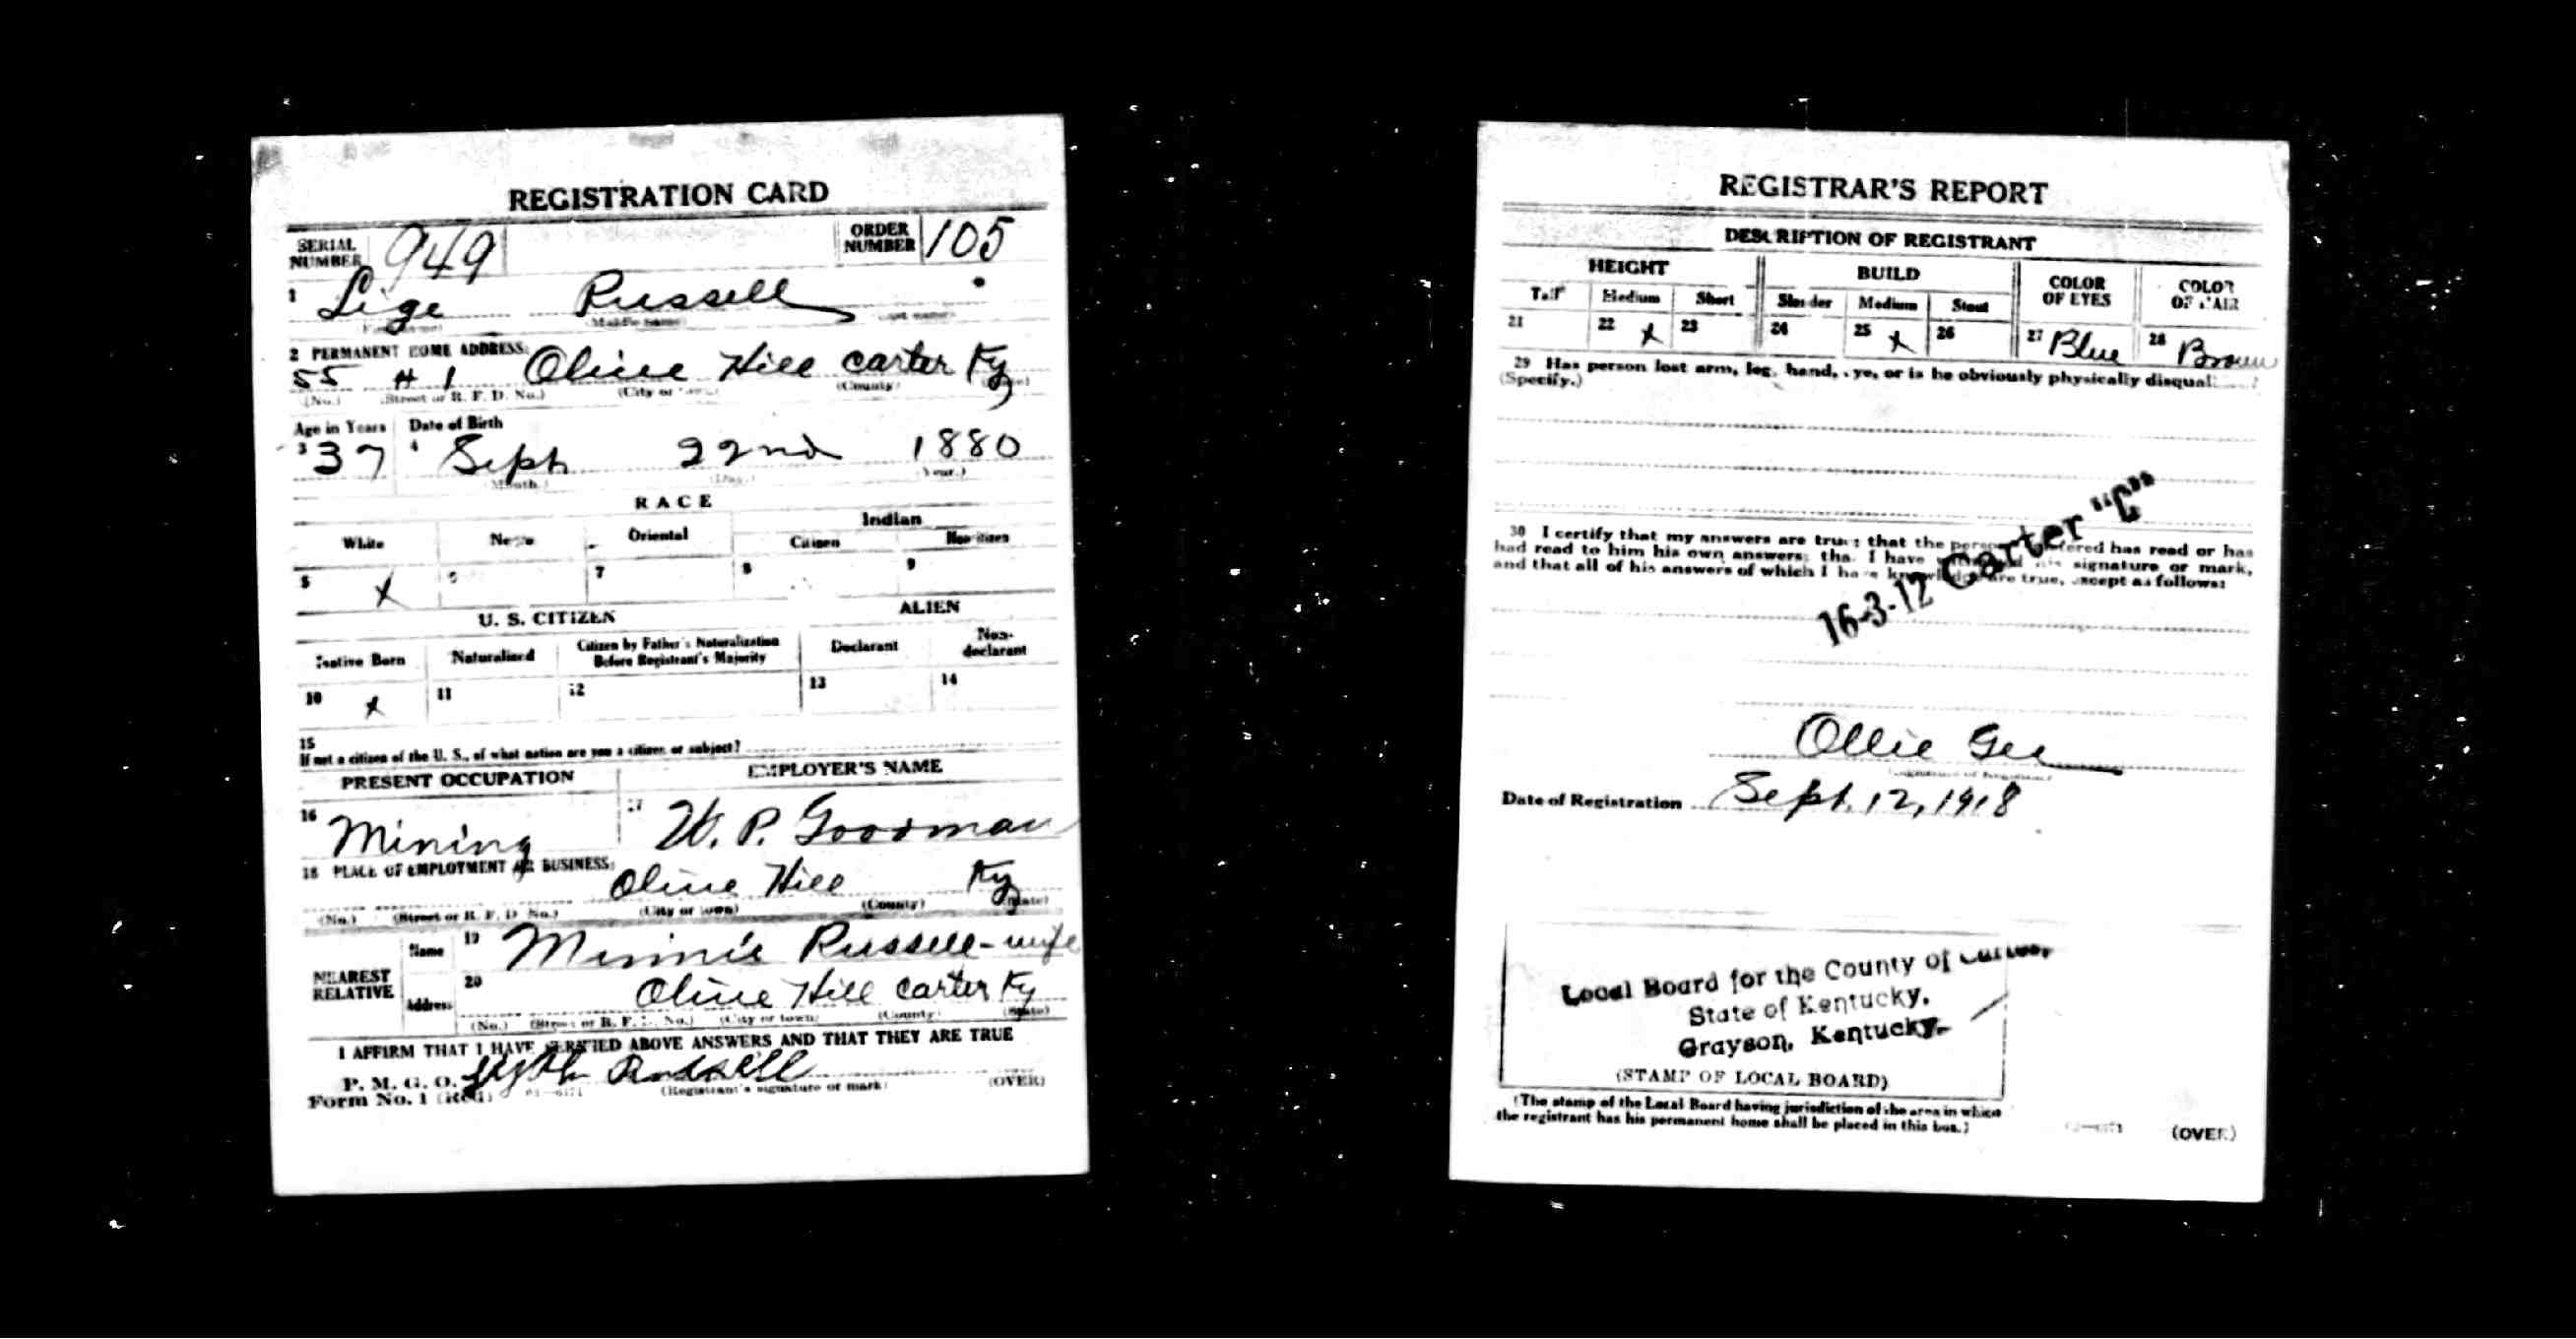 REGISTRATION CARD
SERIAL NUMBER 949 ORDER NUMBER 105
1 Lige Russell
(Middle name)
2 PERMANENT HOME ADDRESS:
55 # 1 Olive Hill Carter Ky
(No.) (Street or R. F. D. No.) (City or town) (County) (State)
Age in Years Date of Birth
3 37 4 Sept 22nd 1880
(Month.) (Day.) (Year.)
RACE
White Negro Oriental Indian
Citizen Noncitizen
5 X 6 7 8 9
U. S. CITIZEN ALIEN
Native Born Naturalized Citizen by Father's Naturalization Before Registrant's Majority Declarant Non-declarant
10 X 11 12 13 14
15
If not a citizen of the U. S., of what nation are you a citizen or subject?
PRESENT OCCUPATION EMPLOYER'S NAME
16 Mining 17 W. P. Goodman
18 PLACE OF EMPLOYMENT OR BUSINESS:
Olive Hill Ky
(No.) (Street or R. F. D. No.) (City or town) (County) (State)
NEAREST RELATIVE
Name 19 Minnie Russell - wife
Address 20 Olive Hill Carter Ky
(No.) (Street or R. F. D. No.) (City or town) (County) (State)
I AFFIRM THAT I HAVE VERIFIED ABOVE ANSWERS AND THAT THEY ARE TRUE
P. M. G. O. Russell
Form No. 1 (Red) (Registrant's signature or mark) (OVER)
REGISTRAR'S REPORT
DESCRIPTION OF REGISTRANT
HEIGHT BUILD COLOR OF EYES COLOR OF HAIR
Tall Medium Short Slender Medium Stout
21 22 X 23 24 25 X 26 27 Blue 28 Brown
29 Has person lost arm, leg, hand, eye, or is he obviously physically disqualified?
(Specify.)
30 I certify that my answers are true; that the person registered has read or has
had read to him his own answers; that I have witnessed his signature or mark,
and that all of his answers of which I have knowledge are true, except as follows:
16-3-12 Carter "C"
Ollie Gee
(Signature of Registrar)
Date of Registration Sept. 12, 1918
Local Board for the County of Carter,
State of Kentucky,
Grayson, Kentucky.
(STAMP OF LOCAL BOARD)
(The stamp of the Local Board having jurisdiction of the area in which
the registrant has his permanent home shall be placed in this box.)
(OVER)